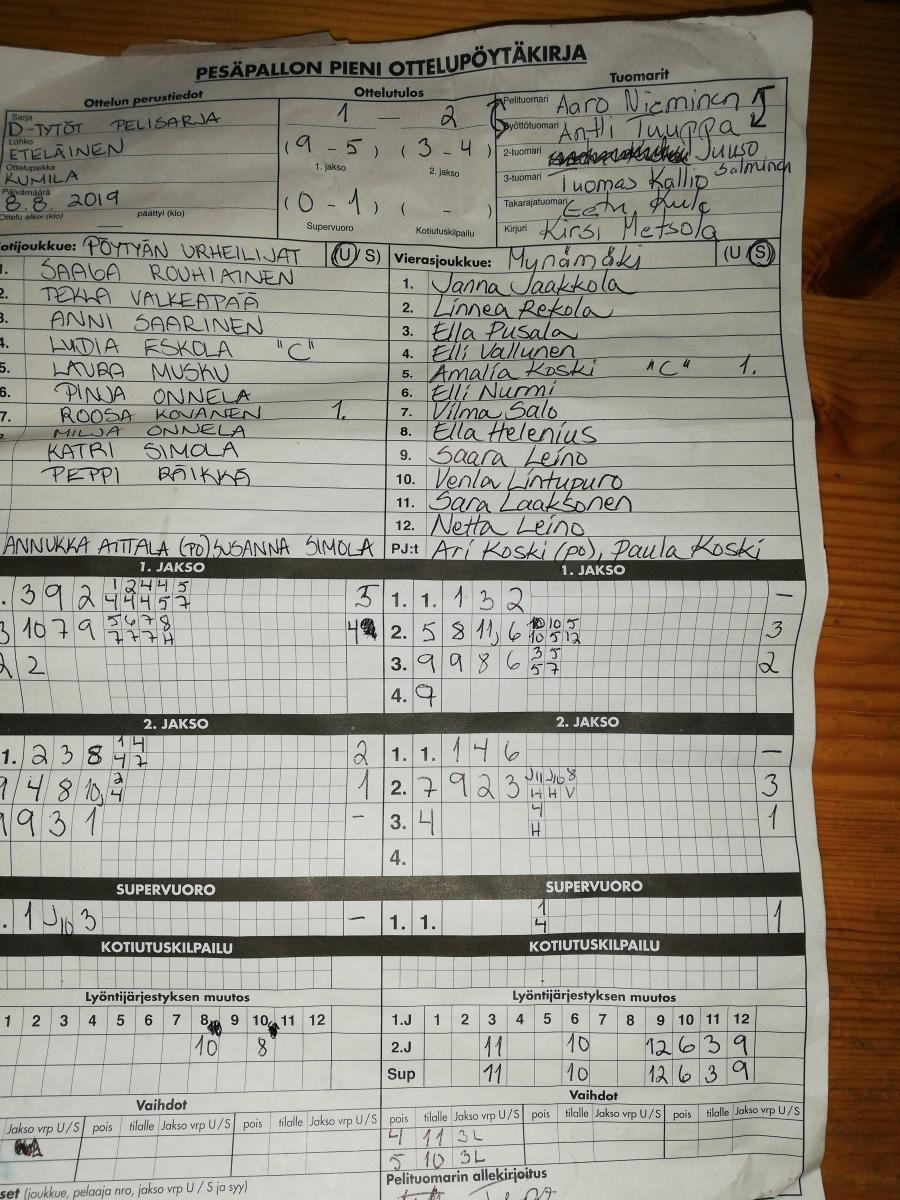 PESÄPALLON PIENI OTTELUPÖYTÄKIRJA
Ottelun perustiedot
Sarja D-TYTÖT PELISARJA
Lohko ETELÄINEN
Ottelupaikka KUMILA
Päivämäärä 8.8. 2019
Ottelu alkoi (klo) päättyi (klo)
Ottelutulos
1 — 2
(9 - 5) (3 - 4)
1. jakso 2. jakso
(0 - 1) ( - )
Supervuoro Kotiutuskilpailu
Tuomarit
Pelituomari Aaro Nieminen
Syöttötuomari Antti Tuuppa
2-tuomari Juuso Salminen
3-tuomari Tuomas Kallio
Takarajatuomari Eetu
Kirjuri Kirsi Metsola
otijoukkue: PÖYTYÄN URHEILIJAT (U/S)
1. SAAGA ROUHIAINEN
2. TEKLA VALKEAPÄÄ
3. ANNI SAARINEN
4. LYDIA ESKOLA "C"
5. LAURA MUSKU
6. PINJA ONNELA
7. ROOSA KOVANEN 1.
MILJA ONNELA
KATRI SIMOLA
PEPPI RÄIKKÄ
ANNUKKA AITTALA (PO) SUSANNA SIMOLA
Vierasjoukkue: Mynämäki (U/S)
1. Janna Jaakkola
2. Linnea Rekola
3. Ella Pusala
4. Elli Vallunen
5. Amalia Koski "C" 1.
6. Elli Nurmi
7. Vilma Salo
8. Ella Helenius
9. Saara Leino
10. Venla Lintupuro
11. Sara Laaksonen
12. Netta Leino
PJ:t Ari Koski (po), Paula Koski
1. JAKSO
. 3 9 2 1 2 4 4 5 5
4 4 4 5 7
3 10 7 9 5 6 7 8 4
7 7 7 H
2 2
1. JAKSO
1. 1. 1 3 2 —
2. 5 8 11, 6 10 10 5 3
10 5 12
3. 9 9 8 6 3 5 2
5 7
4. 9
2. JAKSO
1. 2 3 8 1 4 2
4 7
9 4 8 10, 2 1
4
9 9 3 1 -
2. JAKSO
1. 1. 1 4 6 —
2. 7 9 2 3 J11 J10 8 3
H H V
3. 4 4 1
H
4.
SUPERVUORO
. 1 J10 3 —
SUPERVUORO
1. 1. 1 1
4
KOTIUTUSKILPAILU
KOTIUTUSKILPAILU
Lyöntijärjestyksen muutos
1 2 3 4 5 6 7 8 9 10 11 12
10 8
Lyöntijärjestyksen muutos
1.J 1 2 3 4 5 6 7 8 9 10 11 12
2.J 11 10 12 6 3 9
Sup 11 10 12 6 3 9
Vaihdot
Jakso vrp U/S pois tilalle Jakso vrp U/S pois tilalle Jakso vrp U/S
Vaihdot
pois tilalle Jakso vrp U/S pois tilalle Jakso vrp U/S pois tilalle Jakso vrp U/S
4 11 3L
5 10 3L
set (joukkue, pelaaja nro, jakso vrp U / S ja syy)
Pelituomarin allekirjoitus